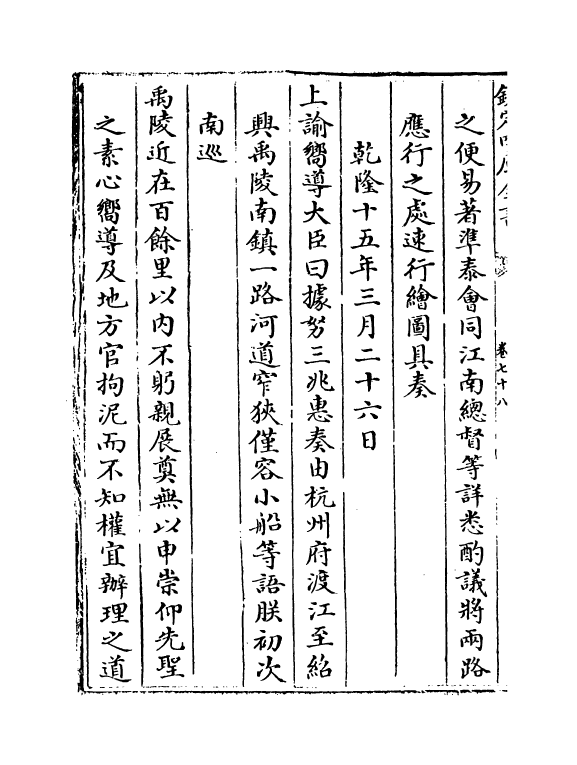 之便易著準泰會同江南總督等詳悉酌議將兩路
應行之處速行繪圖具奏
乾隆十五年三月二十六日
上諭嚮導大臣曰據努三兆惠奏由杭州府渡江至紹
興禹陵南鎮一路河道窄狹僅容小船等語朕初次
南巡
禹陵近在百餘里以内不躬親展奠無以申崇仰先聖
之素心嚮導及地方官拘泥而不知權宜辦理之道
卷七十八